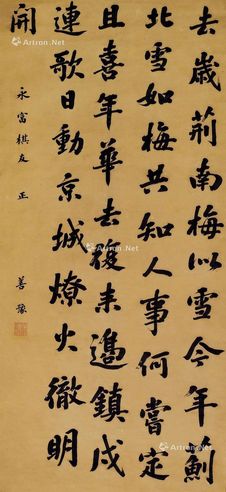 去歲荊南梅似雪今年薊
北雪如梅共知人事何嘗定
且喜年華去復來邊鎮戍
連歌日動京城燎火徹明
開
永富棋友 正
善豫